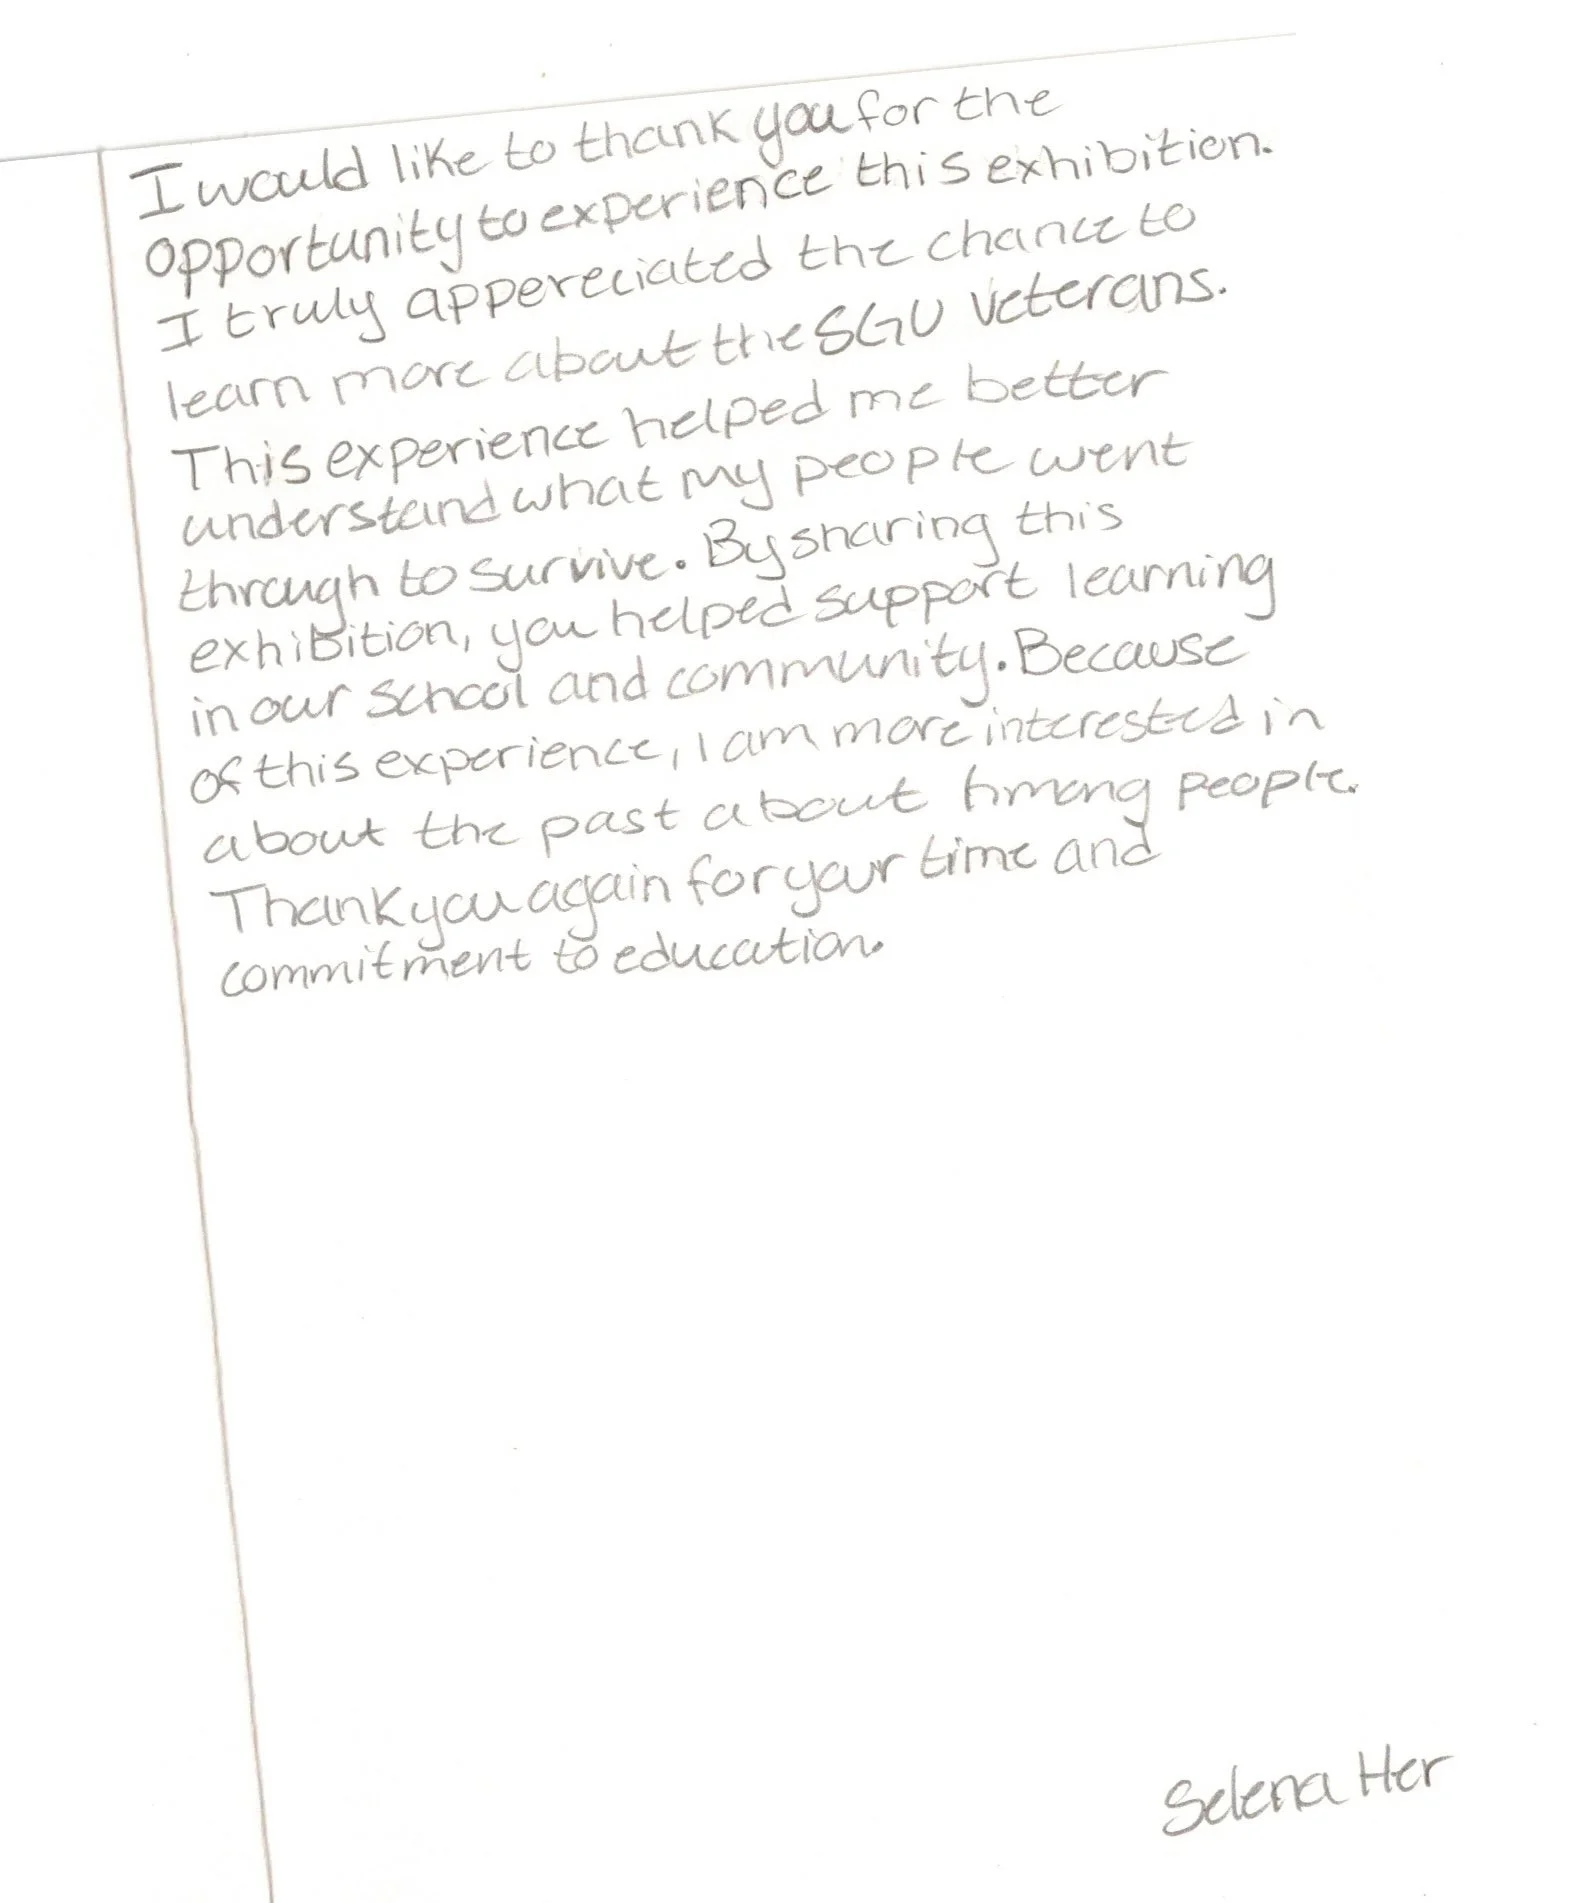 I would like to thank you for the
opportunity to experience this exhibition.
I truly appereciated the chance to
learn more about the SGU veterans.
This experience helped me better
understand what my people went
through to survive. By sharing this
exhibition, you helped support learning
in our school and community. Because
of this experience, I am more interested in
about the past about hmong people.
Thank you again for your time and
commitment to education.
Selena Her